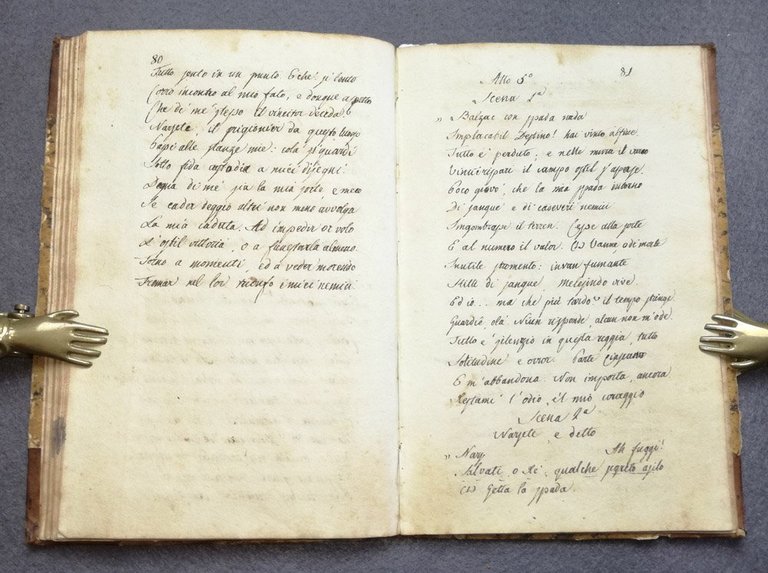 80
Tutto perdo in un punto e che più tento
Corro incontro al mio fato, e dunque aspetto
Che di me stesso il vincitor
Narsete, il prigionier da questo luogo
Passi alle stanze mie: colà si guardi
Sotto fida custodia a miei disegni
Donna di me sia la mia sorte, e meco
Se cader deggio altri non meno avvolga
La mia caduta. Ad impedir or volo
L'ostil vittoria, o a funestarla almeno.
Torno a momenti, ed a veder morendo
Fremer nel lor trionfo i miei nemici
81
Atto 5º
Scena 1ª
" con spada nuda
Implacabil Destino! hai vinto alfine.
Tutto è perduto; e nelle mura il varco
Vinti i ripari il campo ostil s'aperse.
Poco giovò, che la mia spada intorno
Di sangue e di cadaveri nemici
Ingombrasse il terren. Cesse alla sorte
E al numero il valor. (1) Vanne o di morte
Inutile stromento: invan fumante
Stille di sangue
Ed io... ma che più tardo? il tempo stringe.
Guardie, olà. Niun risponde, alcun non m'ode.
Tutto è silenzio in questa reggia, tutto
Solitudine e orror. Parte
E m'abbandona. Non importa, ancora
Restami l'odio, e il mio coraggio
Scena 2ª
Narsete e detto
" Nars. Ah fuggi!
Salvati, o Re, qualche segreto asilo
(1) Getta la spada.